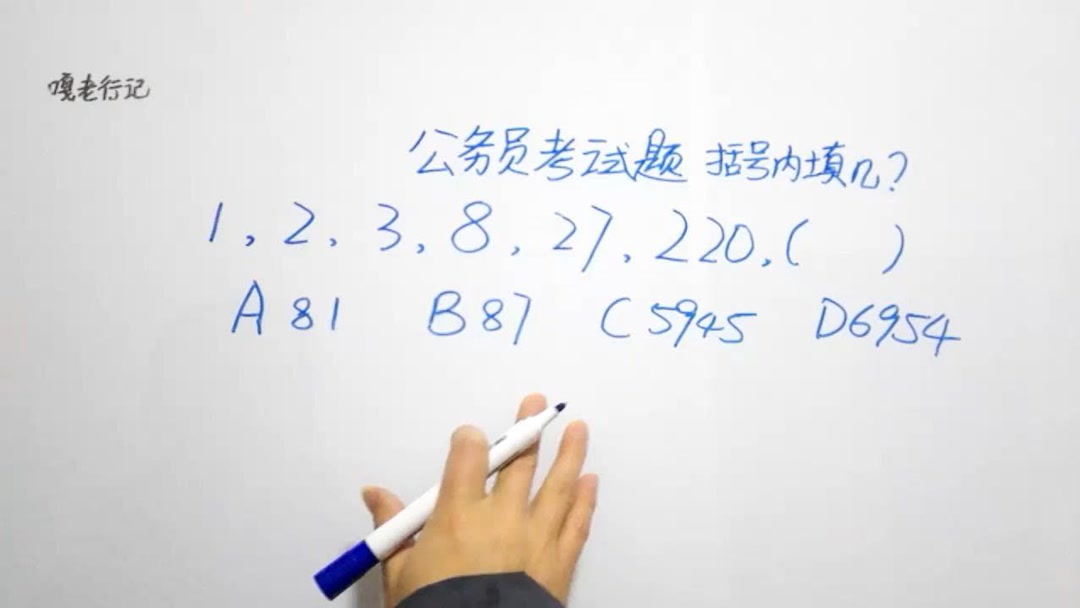 嘎老行记
公务员考试题 括号内填几?
1, 2, 3, 8, 27, 220, ( )
A 81 B 87 C 5945 D 6954